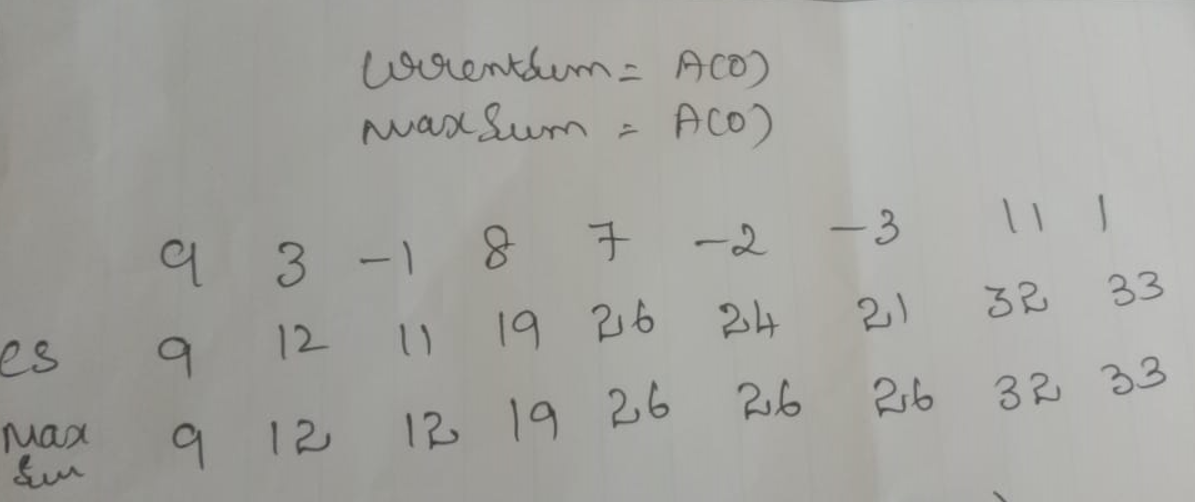 CurrentSum = A(0)
MaxSum = A(0)
9 3 -1 8 7 -2 -3 11 1
cs 9 12 11 19 26 24 21 32 33
Max 9 12 12 19 26 26 26 32 33
Sum